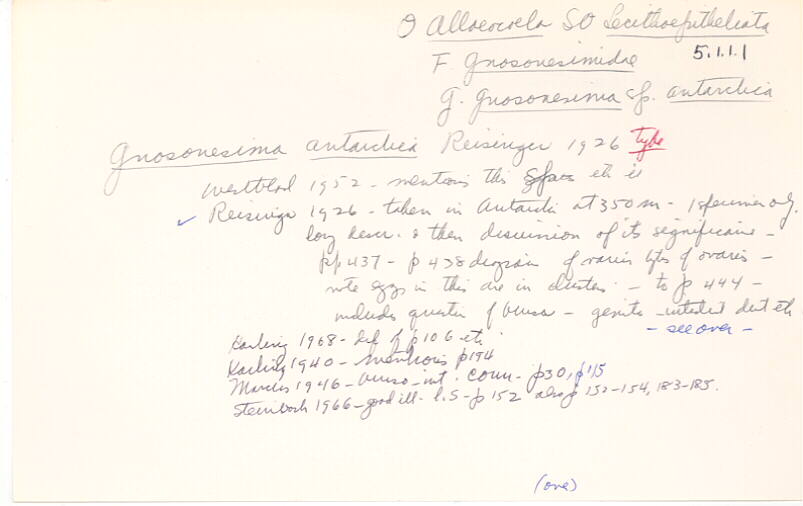 O Alloeocoela SO Lecithoepitheliata
F. Gnosonesimidae 5.1.1.1
G. Gnosonesima sp. antarctica
Gnosonesima antarctica Reisinger 1926 type
Westblad 1952 - mentions this
✓ Reisinger 1926 - taken in Antarctic at 350 m - 1 specimen only.
long descr. & then discussion of its significance -
pp 437 - p 438 diagram of various types of ovaries -
note eggs in this are in clusters - to p 444 -
includes question of bursa - genito - intestinal duct etc
- see over -
Karling 1968 - p 106 etc
Karling 1940 - mentions p 194
Marcus 1946 - burso - int. conn - p 30, p 115
Steinbock 1966 - good ill - l.s - p 152 also p 152-154, 183-185.
(over)